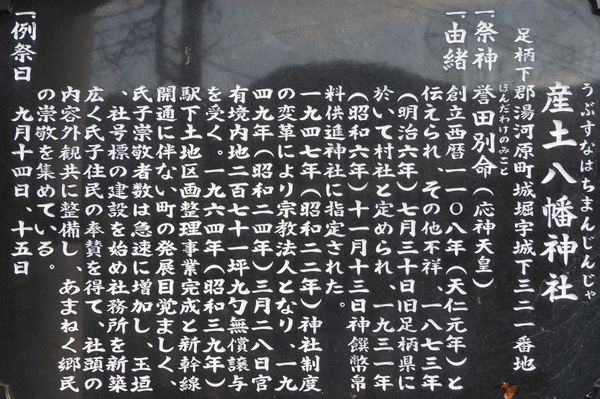 うぶすなはちまんじんじゃ
産土八幡神社
足柄下郡湯河原町城堀字城下三二一番地
一、祭神 誉田別命(応神天皇)
ほんだわけのみこと
一、由緒 創立西暦一一〇八年(天仁元年)と
伝えられ、その他不祥、一八七三年
(明治六年)七月三十日旧足柄県に
於いて村社と定められ、一九三一年
(昭和六年)十一月十三日神饌幣帛
料供進神社に指定された。
一九四七年(昭和二二年)神社制度
の変革により宗教法人となり、一九
四九年(昭和二四年)三月二八日官
有境内地二百七十一坪九勺無償譲与
を受く。一九六四年(昭和三九年)
駅下土地区画整理事業完成と新幹線
開通に伴ない町の発展目覚ましく、
氏子崇敬者数は急速に増加し、玉垣
、社号標の建設を始め社務所を新築
広く氏子住民の奉賛を得て、社頭の
内容外観共に整備し、あまねく郷民
の崇敬を集めている。
一、例祭日 九月十四日、十五日